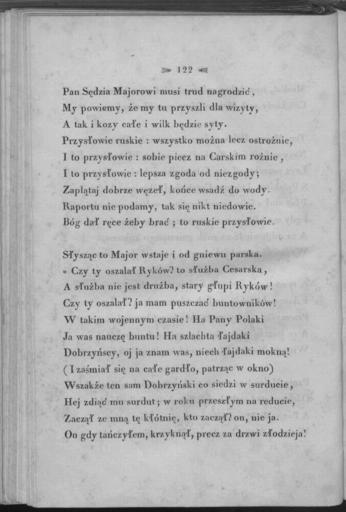 122
Pan Sędzia Majorowi musi trud nagrodzić,
My powiemy, że my tu przyszli dla wizyty,
A tak i kozy całe i wilk będzie syty.
Przysłowie ruskie : wszystko można lecz ostrożnie,
I to przysłowie : sobie piecz na Carskim rożnie,
I to przysłowie : lepsza zgoda od niezgody;
Zaplątaj dobrze węzeł, końce wsadź do wody.
Raportu nie podamy, tak się nikt niedowie.
Bóg dał ręce żeby brać ; to ruskie przysłowie.
Słysząc to Major wstaje i od gniewu parska.
« Czy ty oszalał Ryków? to służba Cesarska,
A służba nie jest drużba, stary głupi Ryków!
Czy ty oszalał? ja mam puszczać buntowników!
W takim wojennym czasie! Ha Pany Polaki
Ja was nauczę buntu! Ha szlachta łajdaki
Dobrzyńscy, oj ja znam was, niech łajdaki mokną!
( I zaśmiał się na całe gardło, patrząc w okno)
Wszakże ten sam Dobrzyński co siedzi w surducie,
Hej zdiąć mu surdut; w roku przeszłym na reducie,
Zaczął ze mną tę kłótnię, kto zaczął? on, nie ja.
On gdy tańczyłem, krzyknął, precz za drzwi złodzieja!